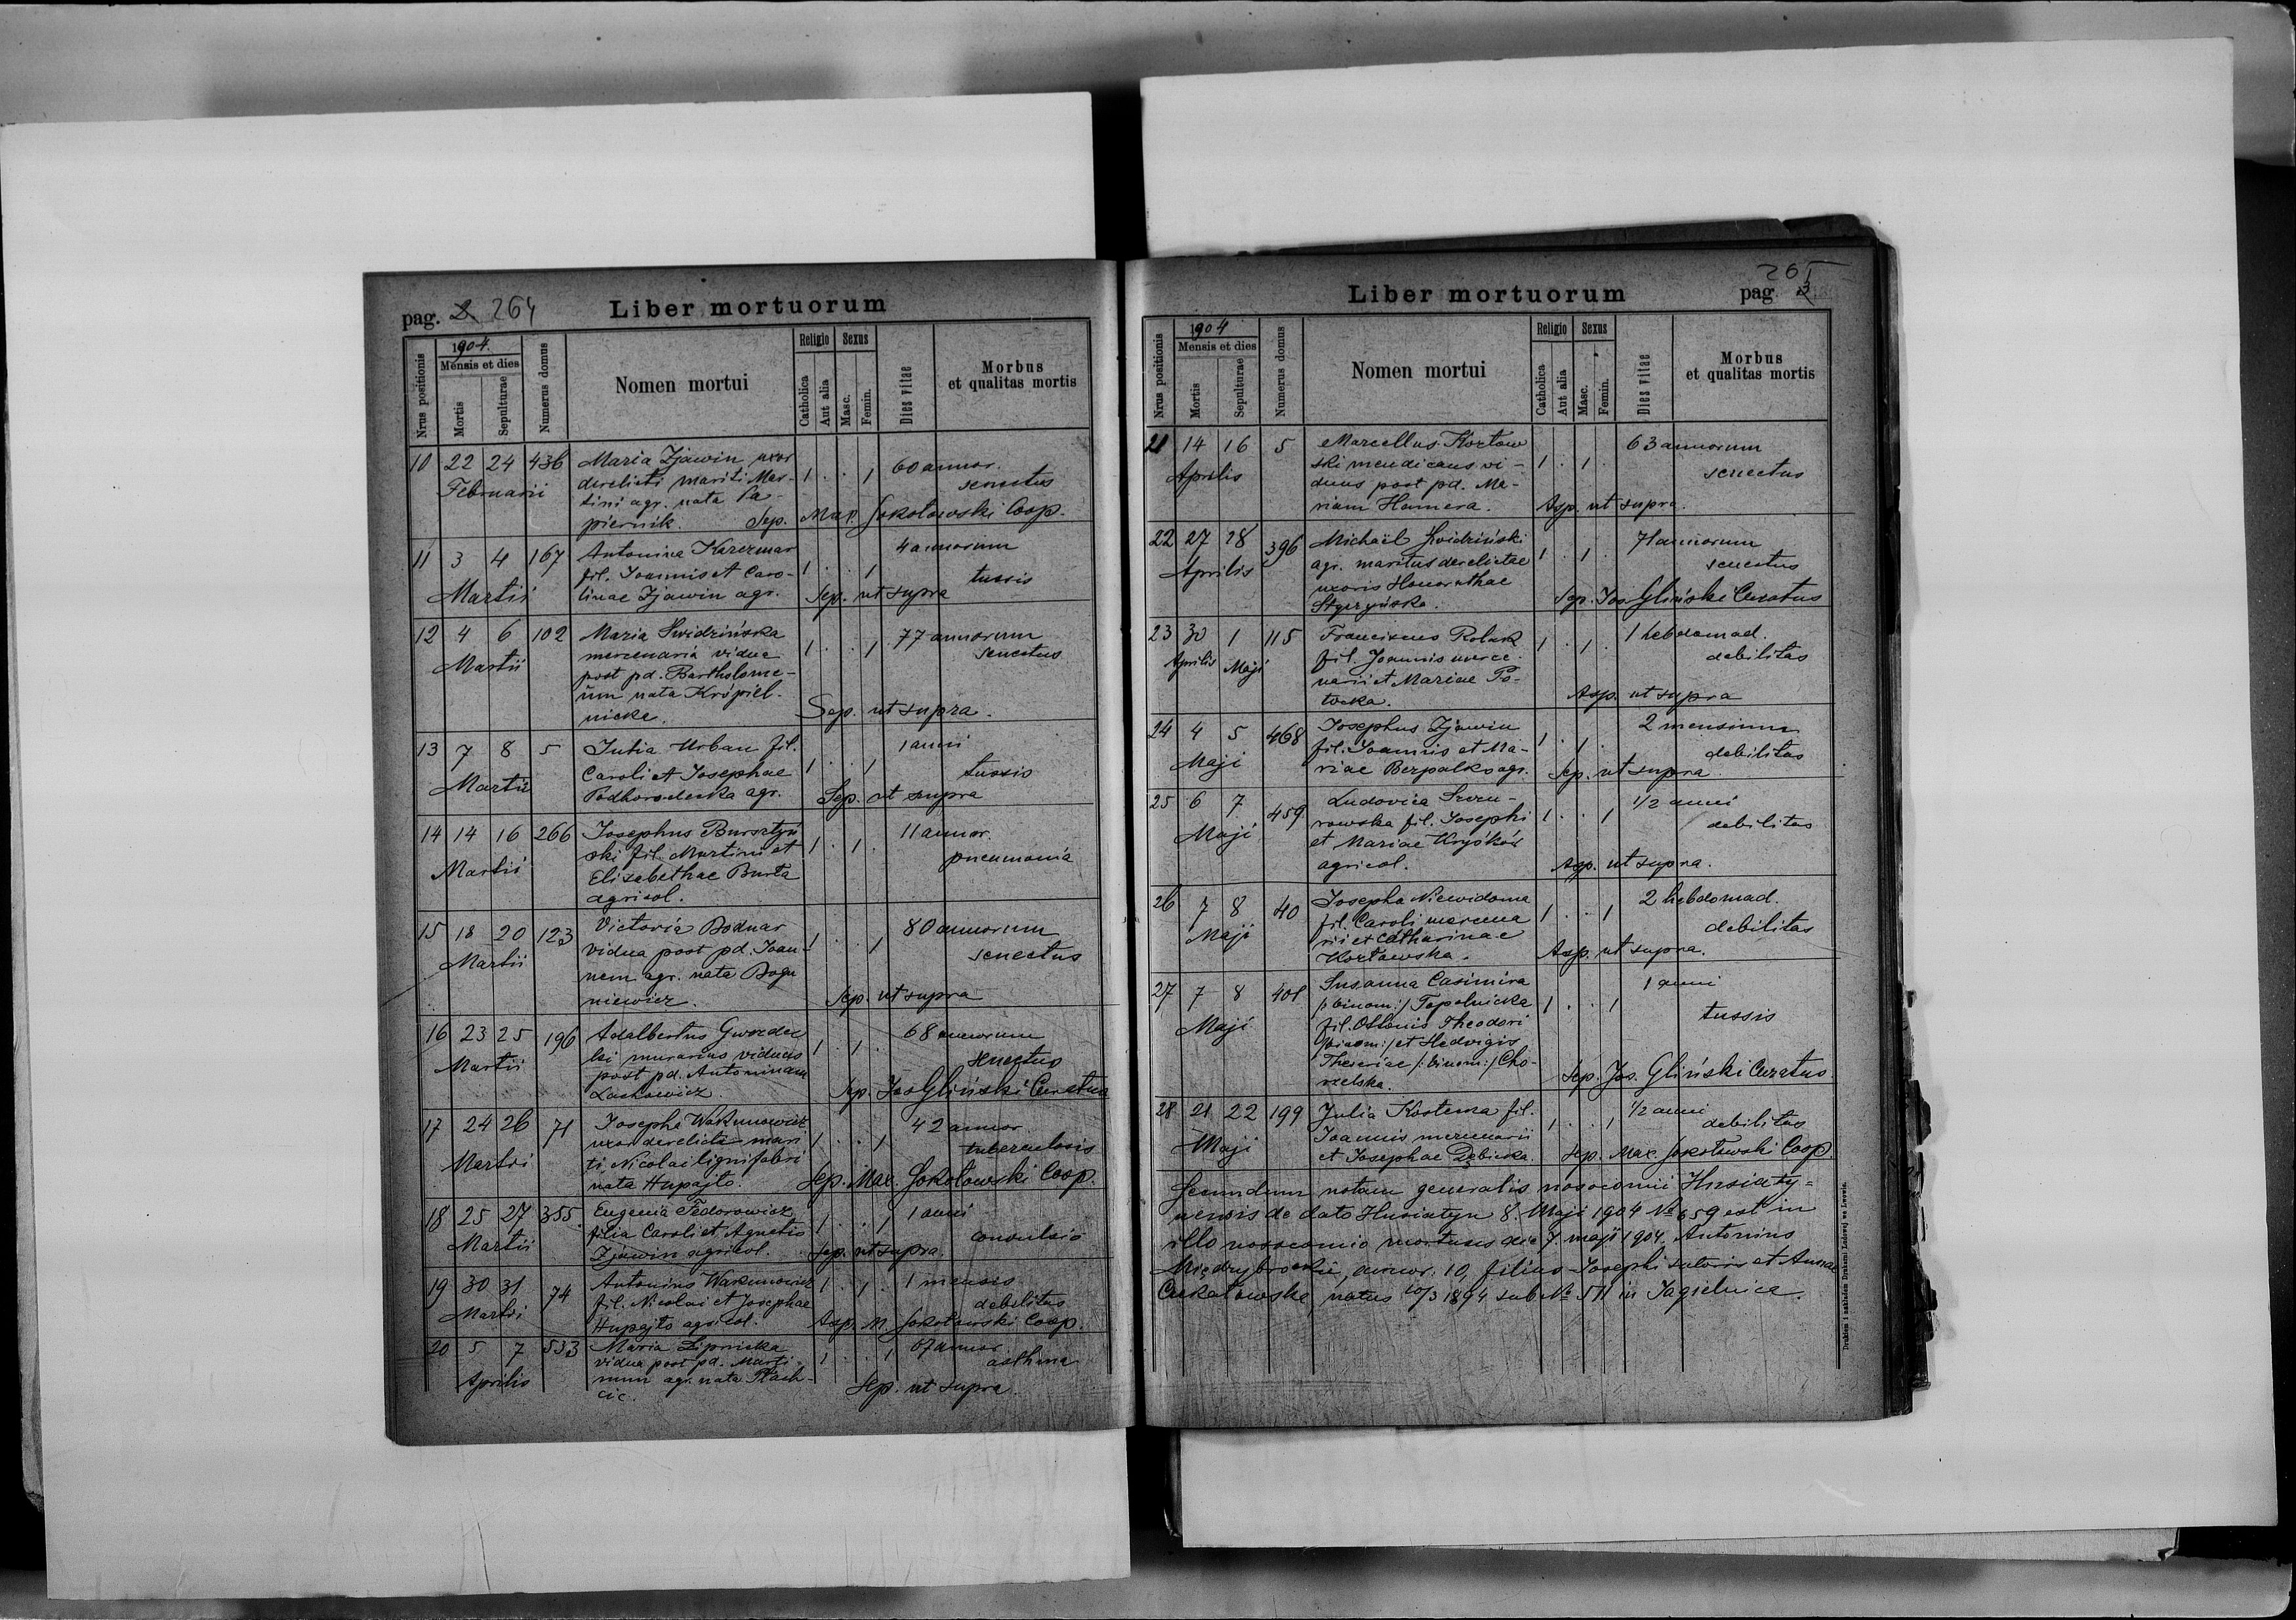 pag. 2 264 Liber mortuorum
Nrus positionis 1904. Mensis et dies Mortis Sepulturae Numerus domus Nomen mortui Religio Catholica Aut alia Sexus Masc. Femin. Dies vitae Morbus et qualitas mortis
10 22 24 436 Maria Zjawin uxor 60 annor.
Februarii derelicti mariti Mar- 1 . . 1 senectus
tini agr. nata Pa-
piernik. Sep. Max. Sokołowski Coop.
11 3 4 167 Antonina Karczmar 4 annorum
fil. Joannis et Caro- 1 . . 1 tussis
Martii linae Zjawin agr. Sep. ut supra
12 4 6 102 Maria Swidzińska 77 annorum
Martii mercenaria vidua 1 . . 1 senectus
post pd. Bartholome-
um nata Krópiel-
nicka. Sep. ut supra.
13 7 8 5 Julia Urban fil. 1 anni
Caroli et Josephae 1 . . 1 tussis
Martii Podhorodecka agr. Sep. ut supra
14 14 16 266 Josephus Bursztyń 11 annor.
ski fil. Martini et 1 . 1 . pneumonia
Martii Elisabethae Burta
agricol.
15 18 20 123 Victoria Bodnar 80 annorum
Martii vidua post pd. Joan- 1 . . 1 senectus
nem agr. nata Bogu
niewicz. Sep. ut supra
16 23 25 196 Adalbertus Gwozdec 68 annorum
Martii ki murarius viduus 1 . 1 . senectus
post pd. Antoninam
Lachowicz. Sep. Jos Gliński Curatus
17 24 26 71 Josepha Wakunowicz 42 annor.
uxor derelicti mari 1 . . 1 tuberculosis
Martii ti Nicolai lignifabri
nata Hupajło. Sep. Max. Sokołowski Coop.
18 25 27 355 Eugenia Fedorowicz 1 anni
Martii filia Caroli et Agnetis 1 . . 1 convulsio
Zjawin agricol. Sep. ut supra.
19 30 31 74 Antonius Wakunowicz 1 . 1 . 1 mensis
Martii fil. Nicolai et Josephae debilitas
Hupajło agricol. Sep. M. Sokołowski Coop.
20 5 7 533 Maria Lipnicka annor
vidua post pd. Marti- 1 . . 1 asthma
Aprilis num agr. nata Płach-
cic. Sep. ut supra.
Liber mortuorum 265 pag. 3
Nrus positionis 1904 Mensis et dies Mortis Sepulturae Numerus domus Nomen mortui Religio Catholica Aut alia Sexus Masc. Femin. Dies vitae Morbus et qualitas mortis
21 14 16 5 Marcellus Kozłow 63 annorum
Aprilis ski mendicans vi- 1 . 1 . senectus
duus post pd. Ma-
riam Hamera. Sep. ut supra.
22 27 28 396 Michaël Swidziński 71 annorum
Aprilis agr. maritus derelictae 1 . 1 . senectus
uxoris Honorathae
Sep. Jos. Gliński Curatus
23 30 1 115 Franciscus Rolak 1 hebdomad.
Aprilis Maji fil. Joannis merce- 1 . 1 . debilitas
narii et Mariae Po-
tocka. Sep. ut supra
24 4 5 468 Josephus Zjawin 2 mensium
Maji fil. Joannis et Ma- 1 . 1 . debilitas
riae Bezpalko agr. Sep. ut supra
25 6 7 459 Ludovica 1/2 anni
Maji rowska fil. Josephi 1 . . 1 debilitas
et Mariae Kryśków
agricol. Sep. ut supra.
26 7 8 40 Josepha Niewidoma 2 hebdomad.
Maji fil. Caroli mercena 1 . . 1 debilitas
rii et Catharinae
Kozłowska. Sep. ut supra.
27 7 8 401 Susanna Casimira 1 anni
/:binom:/ Topolnicka 1 . . 1 tussis
Maji fil. Ottonis Theodori
/:binom:/ et Hedvigis
Theresiae /:binom:/ Cho-
rzelska. Sep. Jos. Gliński Curatus.
28 21 22 199 Julia Kosterna fil. 1/2 anni
Maji Joannis mercenarii 1 . . 1 debilitas
et Josephae Dębicka Sep. Max. Sokołowski Coop.
Secundum notam generalis nosocomii Husiaty-
nensis de dato Husiatyn 8. Maji 1904 № 659 est in
illo nosocomio mortuus die 7. maji 1904. Antonius
annor. 10, filius Josephi sutoris et Annae
natus 10/3 1894 sub № 511 in Jagielnica.
Drukiem i nakładem Drukarni Ludowej we Lwowie.